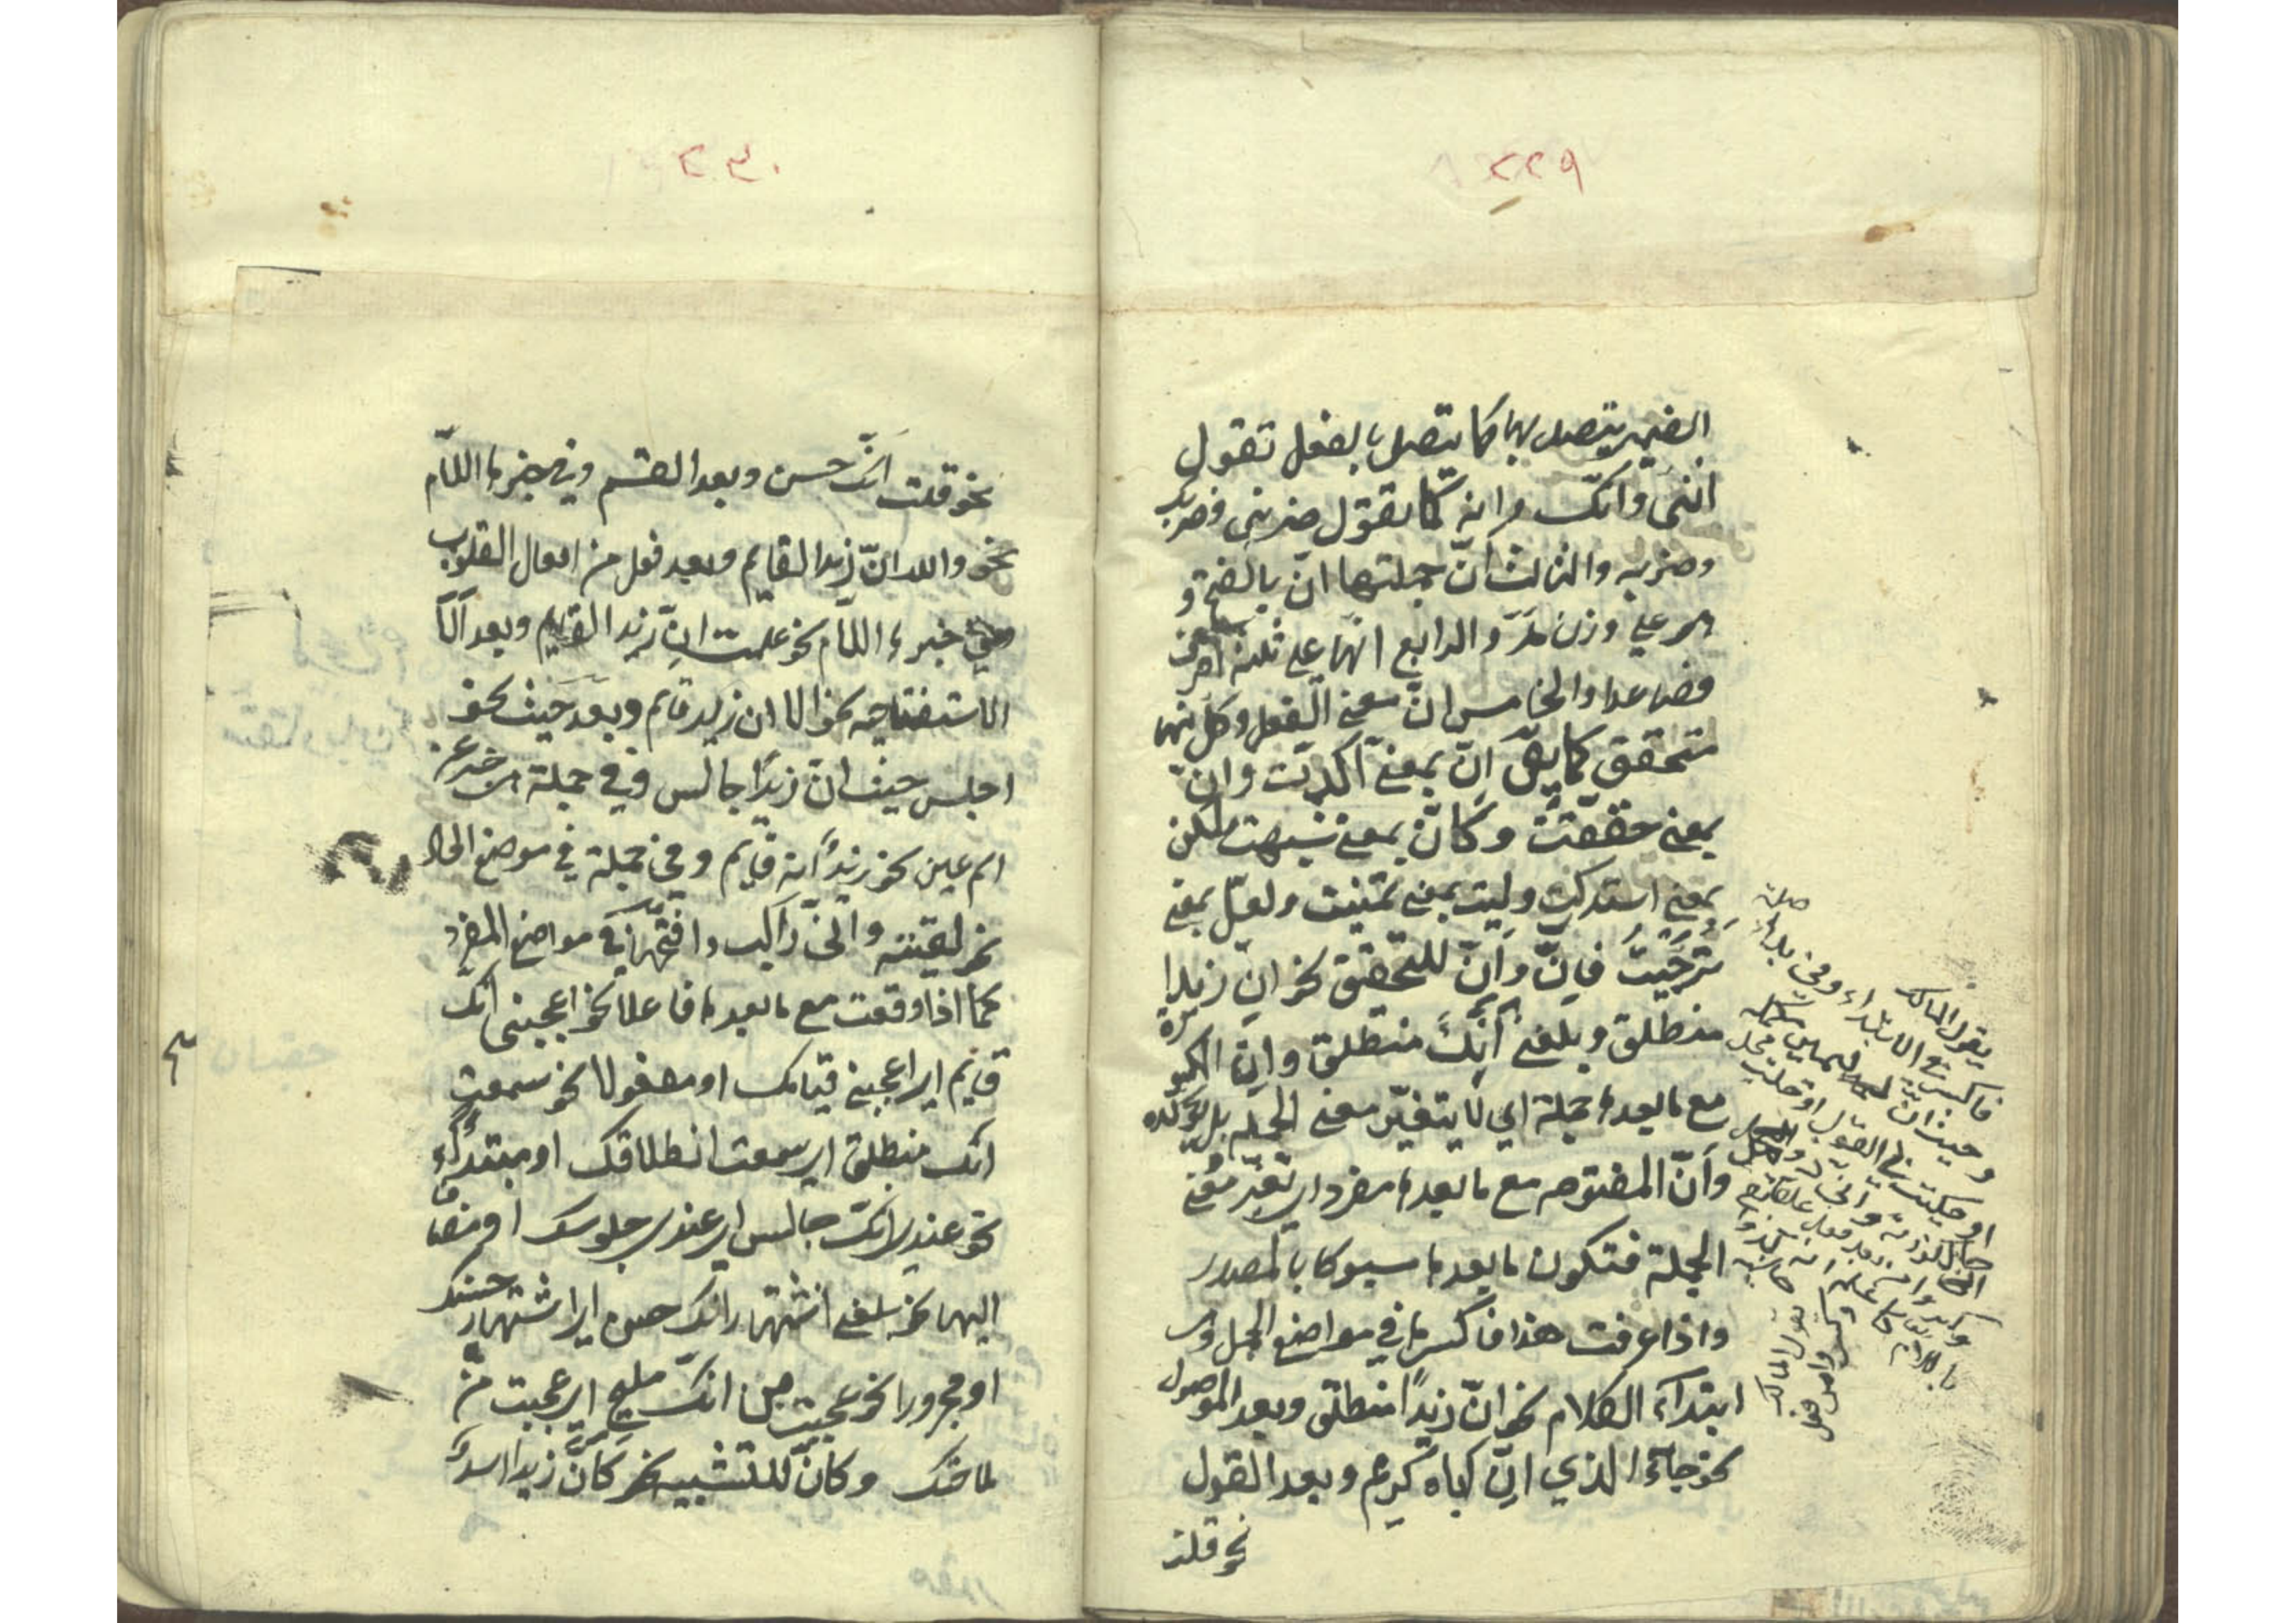 ٢٢٩
الضمير يتصل بها كما يتصل بالفعل تقول
انني وانك وانه كما تقول ضربني وضربك
وضربه والثالث انّ جملتها انّ بالفتح و
هو علي وزن مدّ والرابع انها علي ثلثة احرف
فصاعدا والخامس انّ معني الفعل وكل منها
متحقق كما يق انّ بمعني اكدت وانّ
بمعني حققت وكانّ بمعني شبهت ولكن
بمعني استدركت وليت بمعني تمنيت ولعلّ بمعني
ترجّيت فانّ وانّ للتحقق نحو انّ زيدا
منطلق وبلغني انّك منطلق وانّ المكسورة
مع ما بعدها جملة اي لا يتغيّر معني الجملة بل يؤكده
وأنّ المفتوحه مع ما بعدها مفرد اي تغيّر معني
الجملة فتكون ما بعدها مسبوكا بالمصدر
واذا عرفت هذا فاكسرها في مواضع الجمل وهي
ابتداء الكلام نحو انّ زيدًا منطلق وبعد الموصول
نحو جاء الذي انّ اباه كريم وبعد القول
نحو قلت
صلة
يقول ابن مالك
فاكسر في الابتداء وفي بدء
وحيث انّ ليمين مكمله
او حكيت في القول او حلت محل
حال كزرته واني ذو امل
وكسروا من بعد فعل علقا
باللام كاعلم انه لذو تقى
٢٣٠
نحو قلت انّك حسن وبعد القسم وفي خبرها اللّام
نحو والله انّ زيدا لقايم وبعد فعل من افعال القلوب
وفي خبرها اللّام نحو علمت انّ زيدا لقايم وبعد ألا
الاستفتاحيه نحو الا ان زيد قايم وبعد حيث نحو
اجلس حيث انّ زيدًا جالس وفي جملة هي خبر عن
اسم عين نحو زيدٌ انه قايم وفي جملة في موضع الحال
نحو لقيته وانّي راكب وافتحها في مواضع المفرد
كما اذا وقعت مع ما بعدها فاعلا نحو اعجبني انّك
قايم اي اعجبني قيامك او مفعولا نحو سمعت
انك منطلق اي سمعت انطلاقك او مبتداء
نحو عندي انّك جالس اي عندي جلوسك او مضافا
اليها نحو بلغني اشتهار انك حسن اي اشتهار حسنك
او مجرورا نحو عجبت من انّك مليح اي عجبت من
ملاحتك وكانّ للتشبيه نحو كانّ زيدا اسدٌ